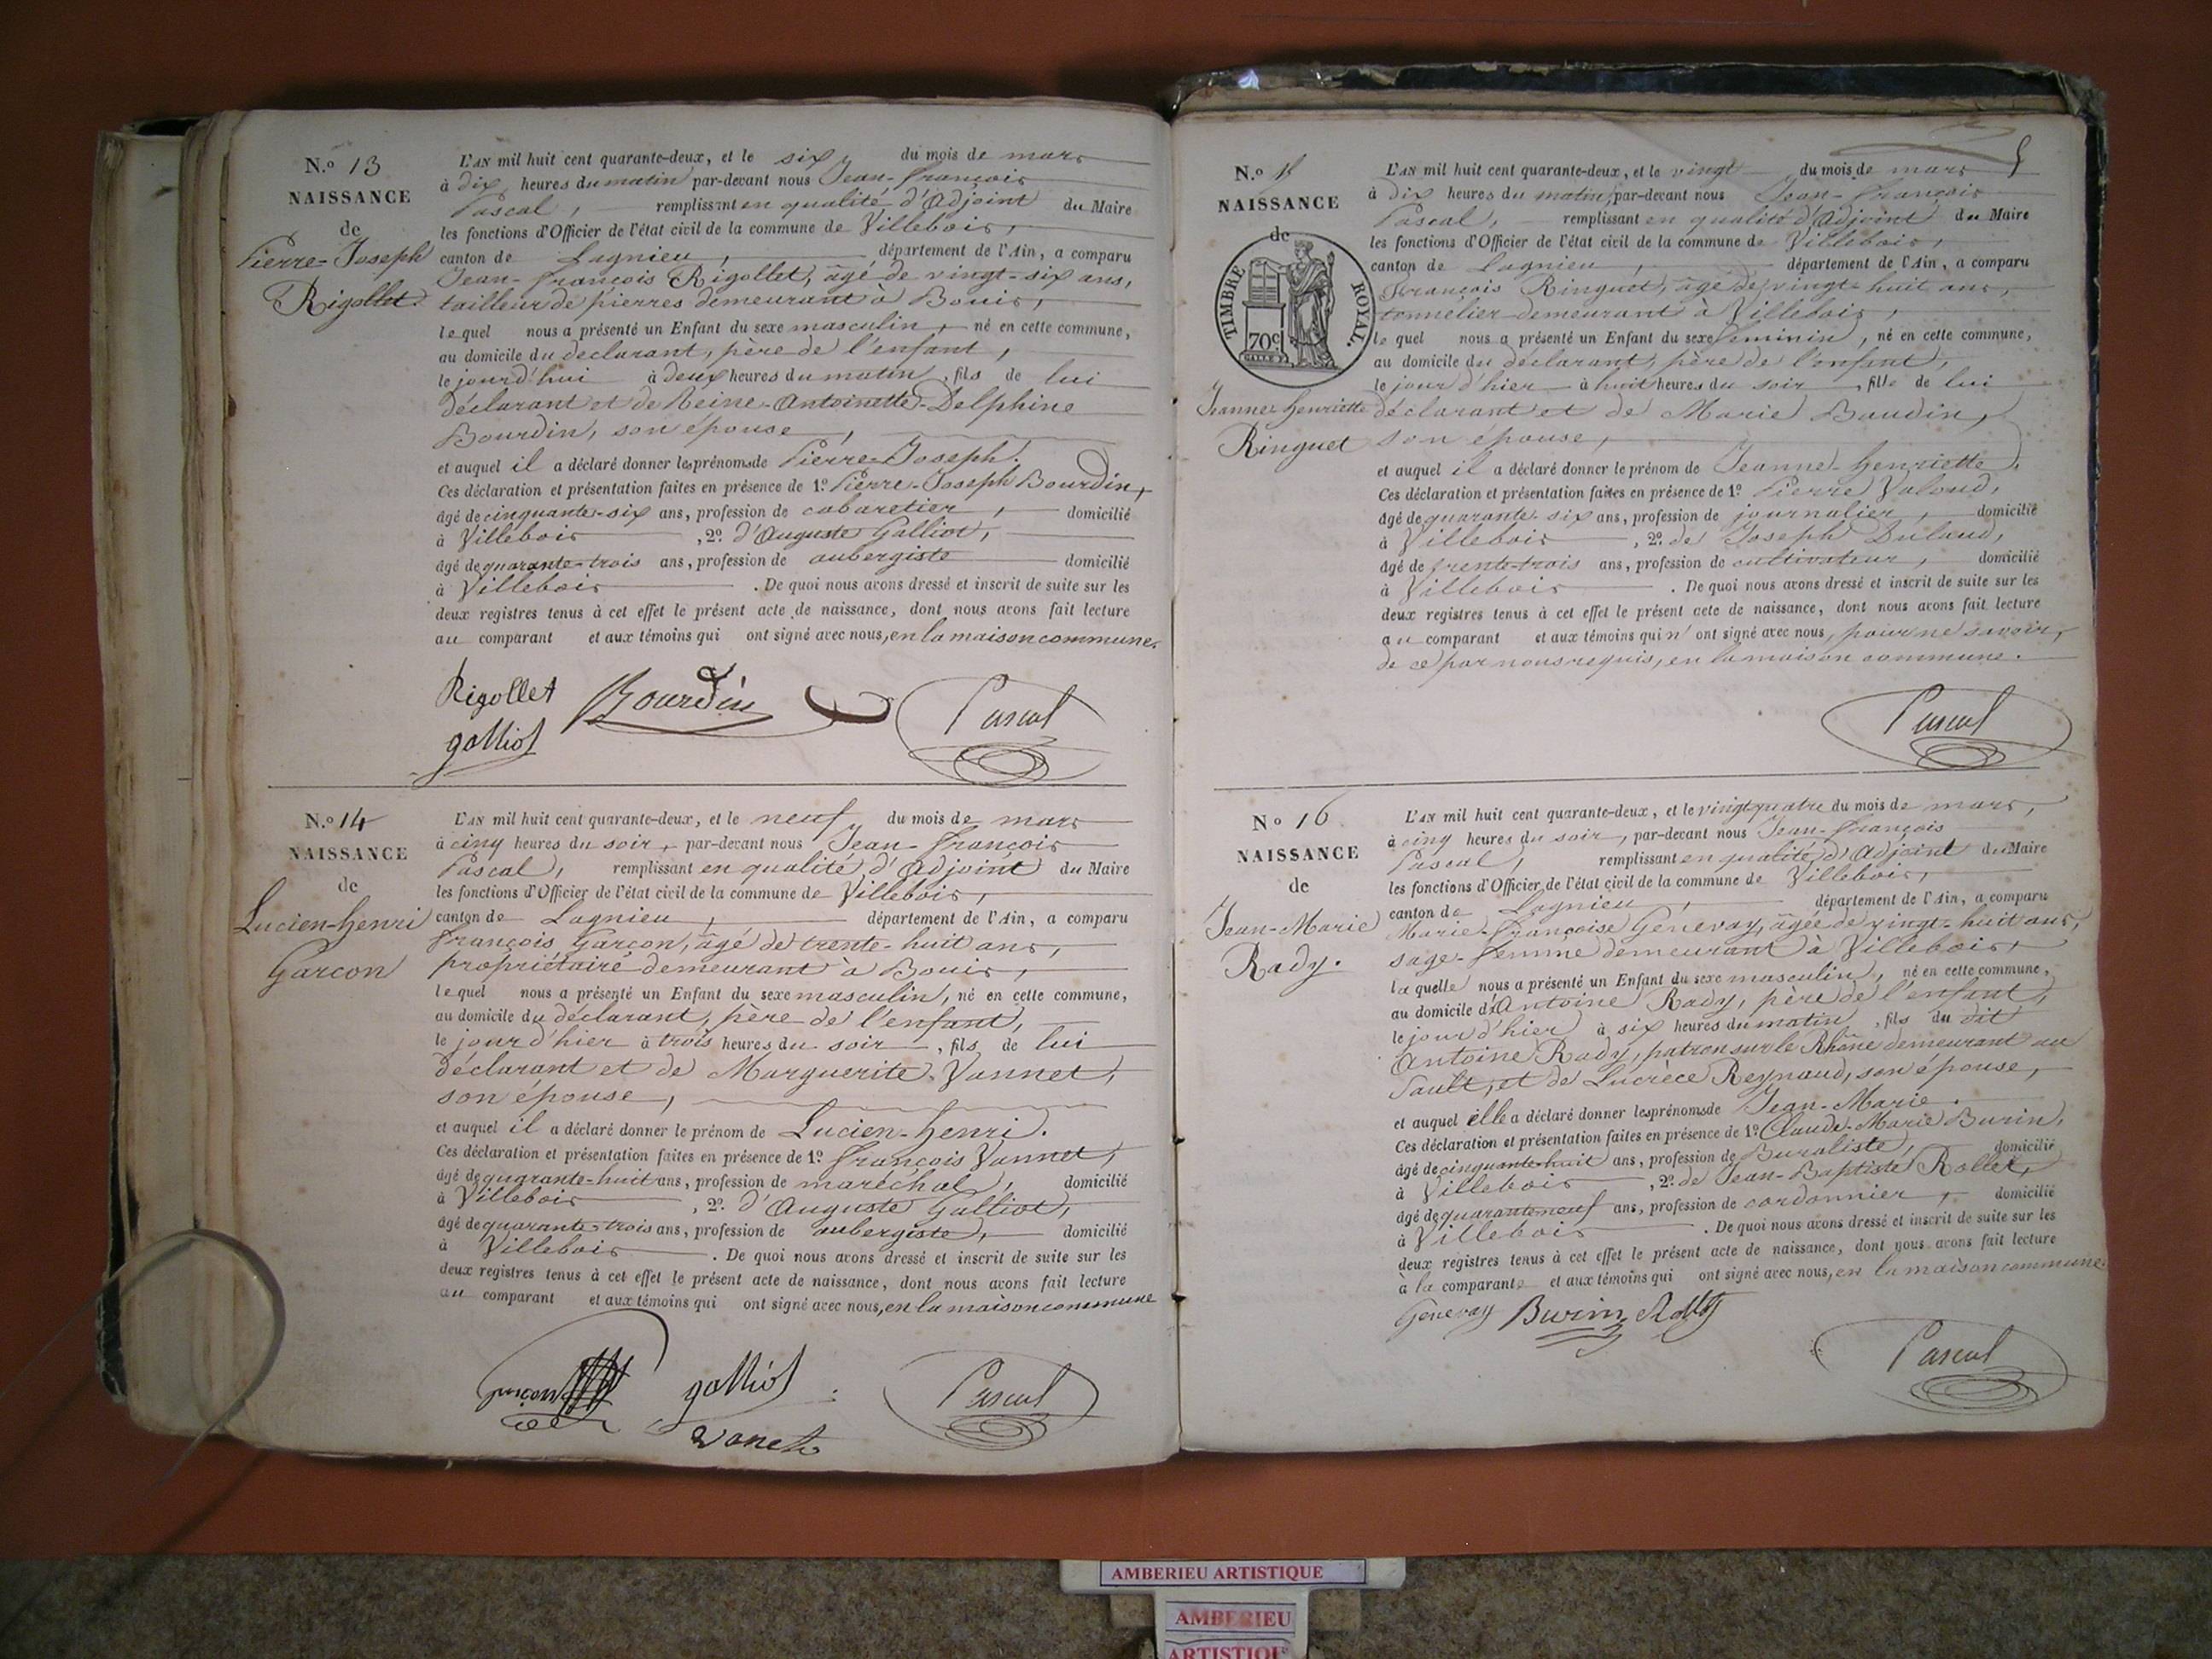 N.º 13
NAISSANCE
de
Pierre-Joseph
Rigollet.
L'AN mil huit cent quarante-deux, et le six du mois de mars
à dix heures du matin par-devant nous Jean-François
Pascal, remplissant en qualité d'Adjoint du Maire
les fonctions d'Officier de l'état civil de la commune de Villebois,
canton de Lagnieu, département de l'Ain, a comparu
Jean-François Rigollet, âgé de vingt-six ans,
tailleur de pierres demeurant à Bouis,
lequel nous a présenté un Enfant du sexe masculin, né en cette commune,
au domicile du déclarant, père de l'enfant,
le jourd'hui à deux heures du matin, fils de lui
déclarant et de Reine-Antoinette-Delphine
Bourdin, son épouse,
et auquel il a déclaré donner les prénoms de Pierre-Joseph.
Ces déclaration et présentation faites en présence de 1º Pierre-Joseph Bourdin,
âgé de cinquante-six ans, profession de cabaretier, domicilié
à Villebois, 2º d'Auguste Galliot,
âgé de quarante-trois ans, profession de aubergiste domicilié
à Villebois. De quoi nous avons dressé et inscrit de suite sur les
deux registres tenus à cet effet le présent acte de naissance, dont nous avons fait lecture
au comparant et aux témoins qui ont signé avec nous, en la maison commune.
Rigollet Bourdin Pascal
galliot
N.º 14
NAISSANCE
de
Lucien-henri
Garcon
L'AN mil huit cent quarante-deux, et le neuf du mois de mars
à cinq heures du soir, par-devant nous Jean-François
Pascal, remplissant en qualité d'Adjoint du Maire
les fonctions d'Officier de l'état civil de la commune de Villebois,
canton de Lagnieu, département de l'Ain, a comparu
François Garcon, âgé de trente-huit ans,
propriétaire demeurant à Bouis,
lequel nous a présenté un Enfant du sexe masculin, né en cette commune,
au domicile du déclarant, père de l'enfant,
le jour d'hier à trois heures du soir, fils de lui
déclarant et de Marguerite Vannet,
son épouse,
et auquel il a déclaré donner le prénom de Lucien-henri.
Ces déclaration et présentation faites en présence de 1º François Vannet,
âgé de quarante-huit ans, profession de maréchal, domicilié
à Villebois, 2º d'Auguste Galliot,
âgé de quarante-trois ans, profession de aubergiste, domicilié
à Villebois. De quoi nous avons dressé et inscrit de suite sur les
deux registres tenus à cet effet le présent acte de naissance, dont nous avons fait lecture
au comparant et aux témoins qui ont signé avec nous, en la maison commune
garçon galliot Pascal
vanet
5
N.º 15
NAISSANCE
de
TIMBRE ROYAL.
70c
Jeanne-henriette
Ringuet
L'AN mil huit cent quarante-deux, et le vingt du mois de mars
à dix heures du matin, par-devant nous Jean-François
Pascal, remplissant en qualité d'Adjoint du Maire
les fonctions d'Officier de l'état civil de la commune de Villebois,
canton de Lagnieu, département de l'Ain, a comparu
François Ringuet, âgé de vingt-huit ans,
tonnelier demeurant à Villebois,
lequel nous a présenté un Enfant du sexe féminin, né en cette commune,
au domicile du déclarant, père de l'enfant,
le jour d'hier à huit heures du soir, fille de lui
déclarant et de Marie Baudin,
son épouse,
et auquel il a déclaré donner le prénom de Jeanne-henriette.
Ces déclaration et présentation faites en présence de 1º Pierre Valoud,
âgé de quarante-six ans, profession de journalier, domicilié
à Villebois, 2º de Joseph Dulaud,
âgé de trente-trois ans, profession de cultivateur, domicilié
à Villebois. De quoi nous avons dressé et inscrit de suite sur les
deux registres tenus à cet effet le présent acte de naissance, dont nous avons fait lecture
au comparant et aux témoins qui n'ont signé avec nous, pour ne savoir,
de ce par nous requis, en la maison commune.
Pascal
Nº 16
NAISSANCE
de
Jean-Marie
Rady.
L'AN mil huit cent quarante-deux, et le vingt quatre du mois de mars,
à cinq heures du soir, par-devant nous Jean-François
Pascal, remplissant en qualité d'Adjoint du Maire
les fonctions d'Officier de l'état civil de la commune de Villebois,
canton de Lagnieu, département de l'Ain, a comparu
Marie-Françoise Genevay, âgée de vingt-huit ans,
sage-femme demeurant à Villebois,
laquelle nous a présenté un Enfant du sexe masculin, né en cette commune,
au domicile d'Antoine Rady, père de l'enfant,
le jour d'hier à six heures du matin, fils du dit
Antoine Rady, patron sur le Rhône demeurant au
Sault, et de Lucrèce Reynaud, son épouse,
et auquel elle a déclaré donner les prénoms de Jean-Marie.
Ces déclaration et présentation faites en présence de 1º Claude-Marie Burin,
âgé de cinquante-huit ans, profession de Buraliste, domicilié
à Villebois, 2º de Jean-Baptiste Rollet,
âgé de quarante neuf ans, profession de cordonnier, domicilié
à Villebois. De quoi nous avons dressé et inscrit de suite sur les
deux registres tenus à cet effet le présent acte de naissance, dont nous avons fait lecture
à la comparante et aux témoins qui ont signé avec nous, en la maison commune.
Genevay Burin Rollet
Pascal
AMBERIEU ARTISTIQUE
AMBERIEU
ARTISTIQUE